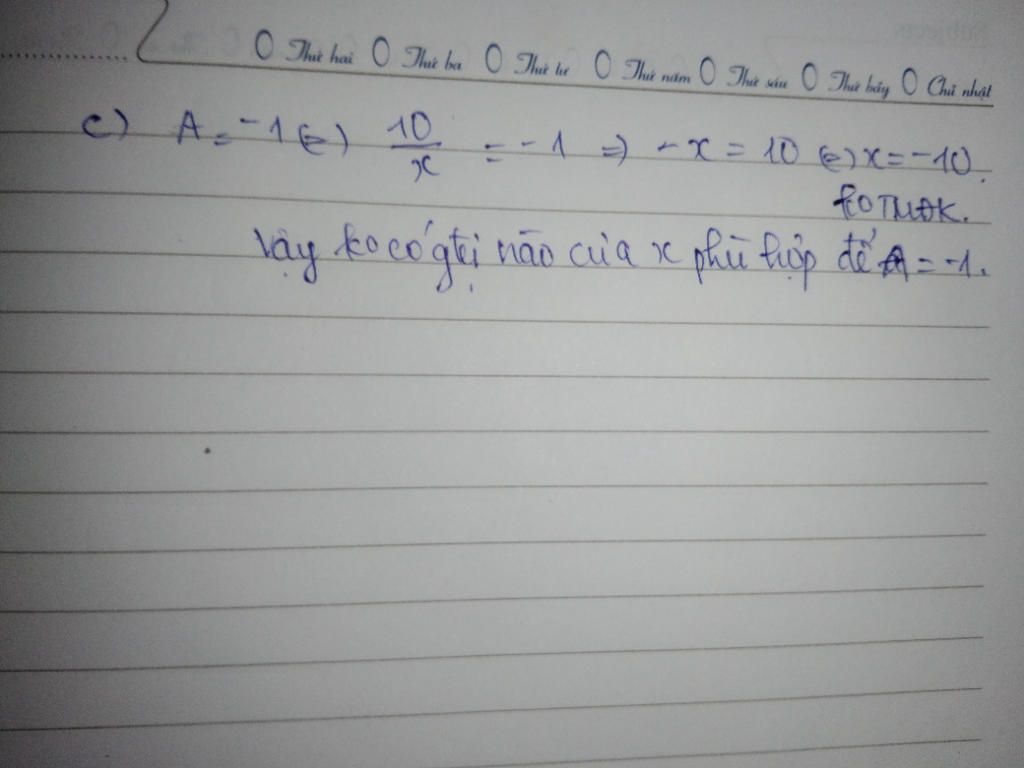 O Thứ hai O Thứ ba O Thứ tư O Thứ năm O Thứ sáu O Thứ bảy O Chủ nhật
c) A = -1 (=) 10/x = -1 => -x = 10 (=) x = -10.
KOTMĐK.
Vậy ko có gtrị nào của x phù hợp để A = -1.